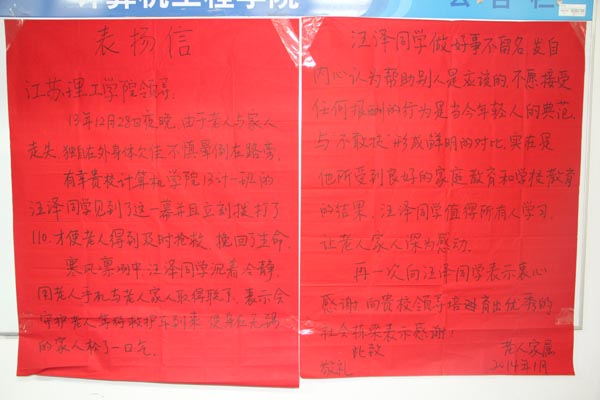 计算机工程学院
公告栏
表扬信
江苏理工学院领导:
13年12月28日夜晚,由于老人与家人
走失,独自在外身体欠佳不慎晕倒在路旁,
有幸贵校计算机学院13计一班的
汪泽同学见到了这一幕并且立刻拨打了
110,才使老人得到及时抢救,挽回了生命.
寒风凛冽中,汪泽同学沉着冷静,
用老人手机与老人家人取得联系,表示会
守护老人等待救护车到来,使身在无锡
的家人松了一口气.
汪泽同学做好事不留名,发自
内心认为帮助别人是应该的,不愿接受
任何报酬的行为是当今年轻人的典范,
与"不敢扶"形成鲜明的对比,实在是
他所受到良好的家庭教育和学校教育
的结果,汪泽同学值得所有人学习,
让老人家人深为感动.
再一次向汪泽同学表示衷心
感谢,向贵校领导培育出优秀的
社会栋梁表示感谢!
此致
敬礼
老人家属
2014年1月